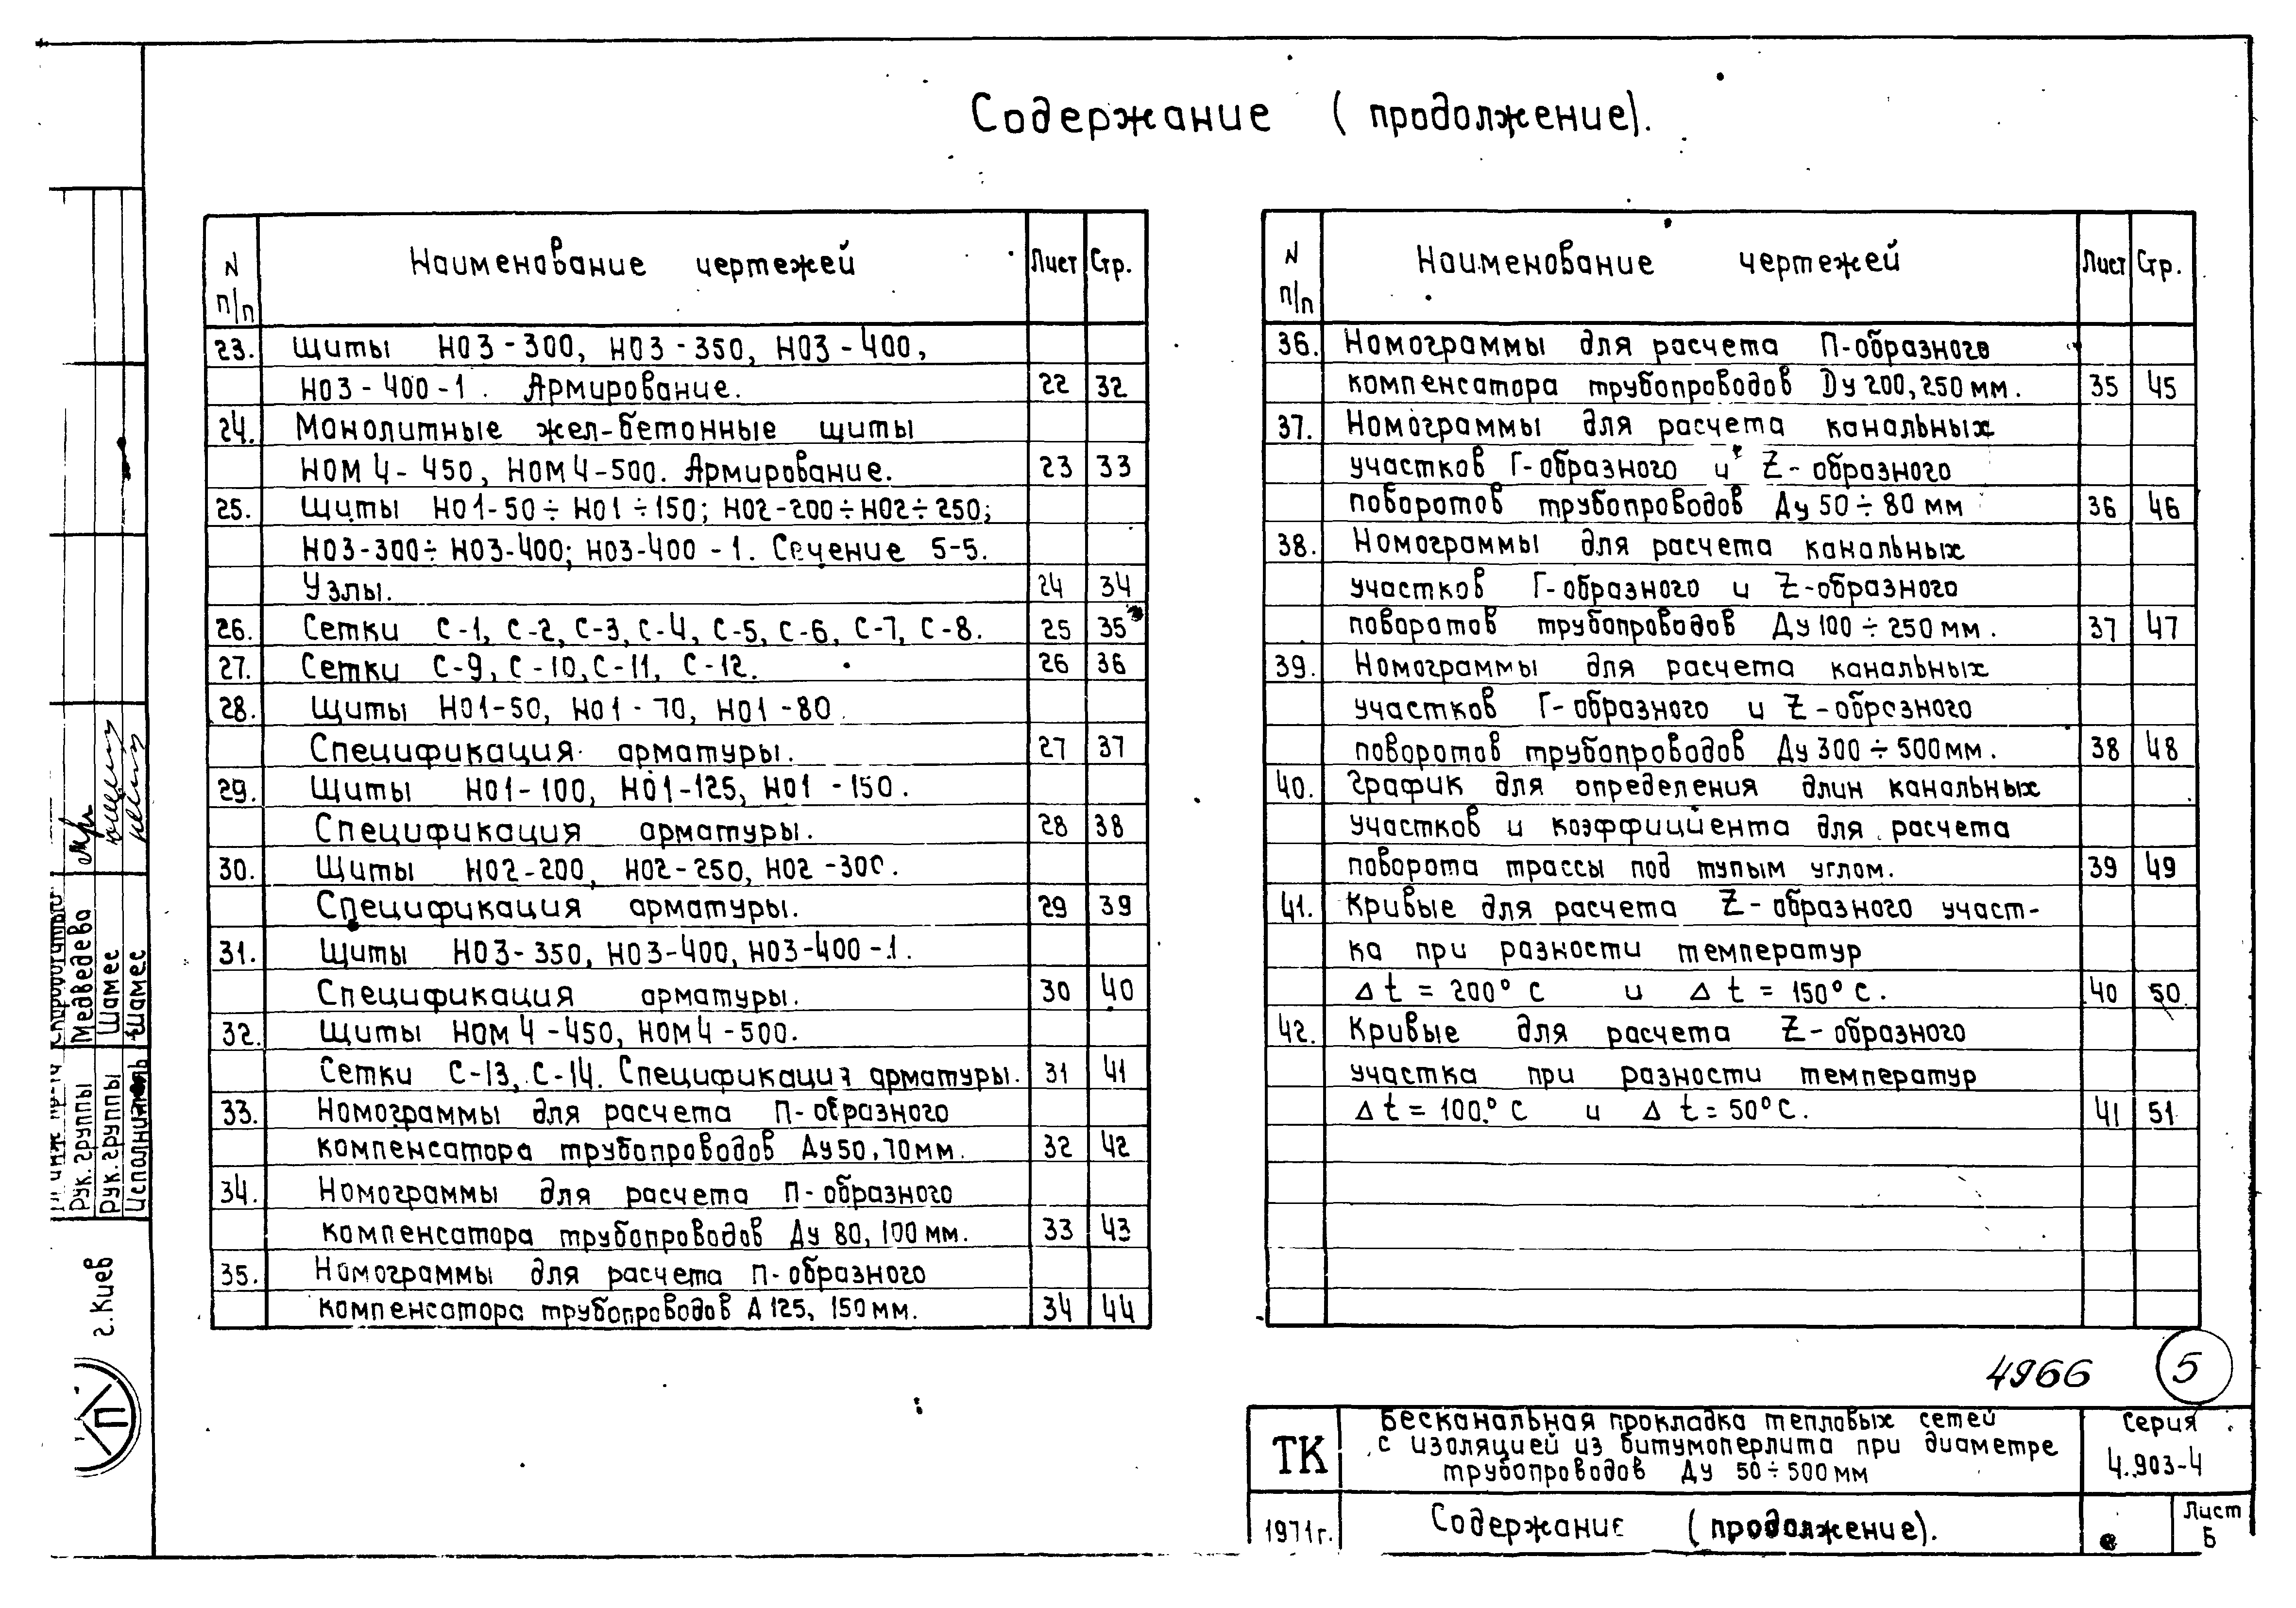 Содержание (продолжение).
N п/п Наименование чертежей Лист Стр.
23. Щиты НО3-300, НО3-350, НО3-400,
НО3-400-1. Армирование. 22 32
24. Монолитные жел-бетонные щиты
НОМ4-450, НОМ4-500. Армирование. 23 33
25. Щиты НО1-50÷НО1÷150; НО2-200÷НО2÷250;
НО3-300÷НО3-400; НО3-400-1. Сечение 5-5.
Узлы. 24 34
26. Сетки С-1, С-2, С-3, С-4, С-5, С-6, С-7, С-8. 25 35
27. Сетки С-9, С-10, С-11, С-12. 26 36
28. Щиты НО1-50, НО1-70, НО1-80
Спецификация арматуры. 27 37
29. Щиты НО1-100, НО1-125, НО1-150.
Спецификация арматуры. 28 38
30. Щиты НО2-200, НО2-250, НО2-300.
Спецификация арматуры. 29 39
31. Щиты НО3-350, НО3-400, НО3-400-1.
Спецификация арматуры. 30 40
32. Щиты НОМ4-450, НОМ4-500.
Сетки С-13, С-14. Спецификация арматуры. 31 41
33. Номограммы для расчета П-образного
компенсатора трубопроводов Ду50, 70мм. 32 42
34. Номограммы для расчета П-образного
компенсатора трубопроводов Ду 80, 100мм. 33 43
35. Номограммы для расчета П-образного
компенсатора трубопроводов Д 125, 150мм. 34 44
N п/п Наименование чертежей Лист Стр.
36. Номограммы для расчета П-образного
компенсатора трубопроводов Dу 200, 250мм. 35 45
37. Номограммы для расчета канальных
участков Г-образного и Z-образного
поворотов трубопроводов Ду 50÷80 мм 36 46
38. Номограммы для расчета канальных
участков Г-образного и Z-образного
поворотов трубопроводов Ду 100÷250мм. 37 47
39. Номограммы для расчета канальных
участков Г-образного и Z-образного
поворотов трубопроводов Ду 300÷500мм. 38 48
40. График для определения длин канальных
участков и коэффициента для расчета
поворота трассы под тупым углом. 39 49
41. Кривые для расчета Z-образного участ-
ка при разности температур
Δt=200°С и Δt=150°С. 40 50
42. Кривые для расчета Z-образного
участка при разности температур
Δt=100°С и Δt=50°С. 41 51
4966 5
ТК
Бесканальная прокладка тепловых сетей
с изоляцией из битумоперлита при диаметре
трубопроводов Ду 50÷500мм
Серия
4.903-4
1971г.
Содержание (продолжение).
Лист
Б
Рук. группы Медведева
Рук. группы Шамес
Исполнитель Шамес
г. Киев
П